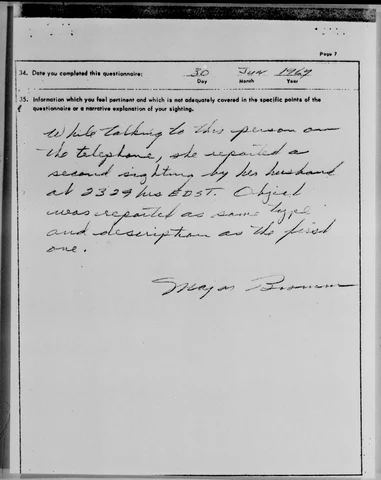 Page 7
34. Date you completed this questionnaire: 30 Jun 1967
Day Month Year
35. Information which you feel pertinent and which is not adequately covered in the specific points of the
questionnaire or a narrative explanation of your sighting.
While talking to this person on
the telephone, she reported a
second sighting by her husband
at 2329 hrs EDST. Object
was reported as same type
and description as the first
one.
Major